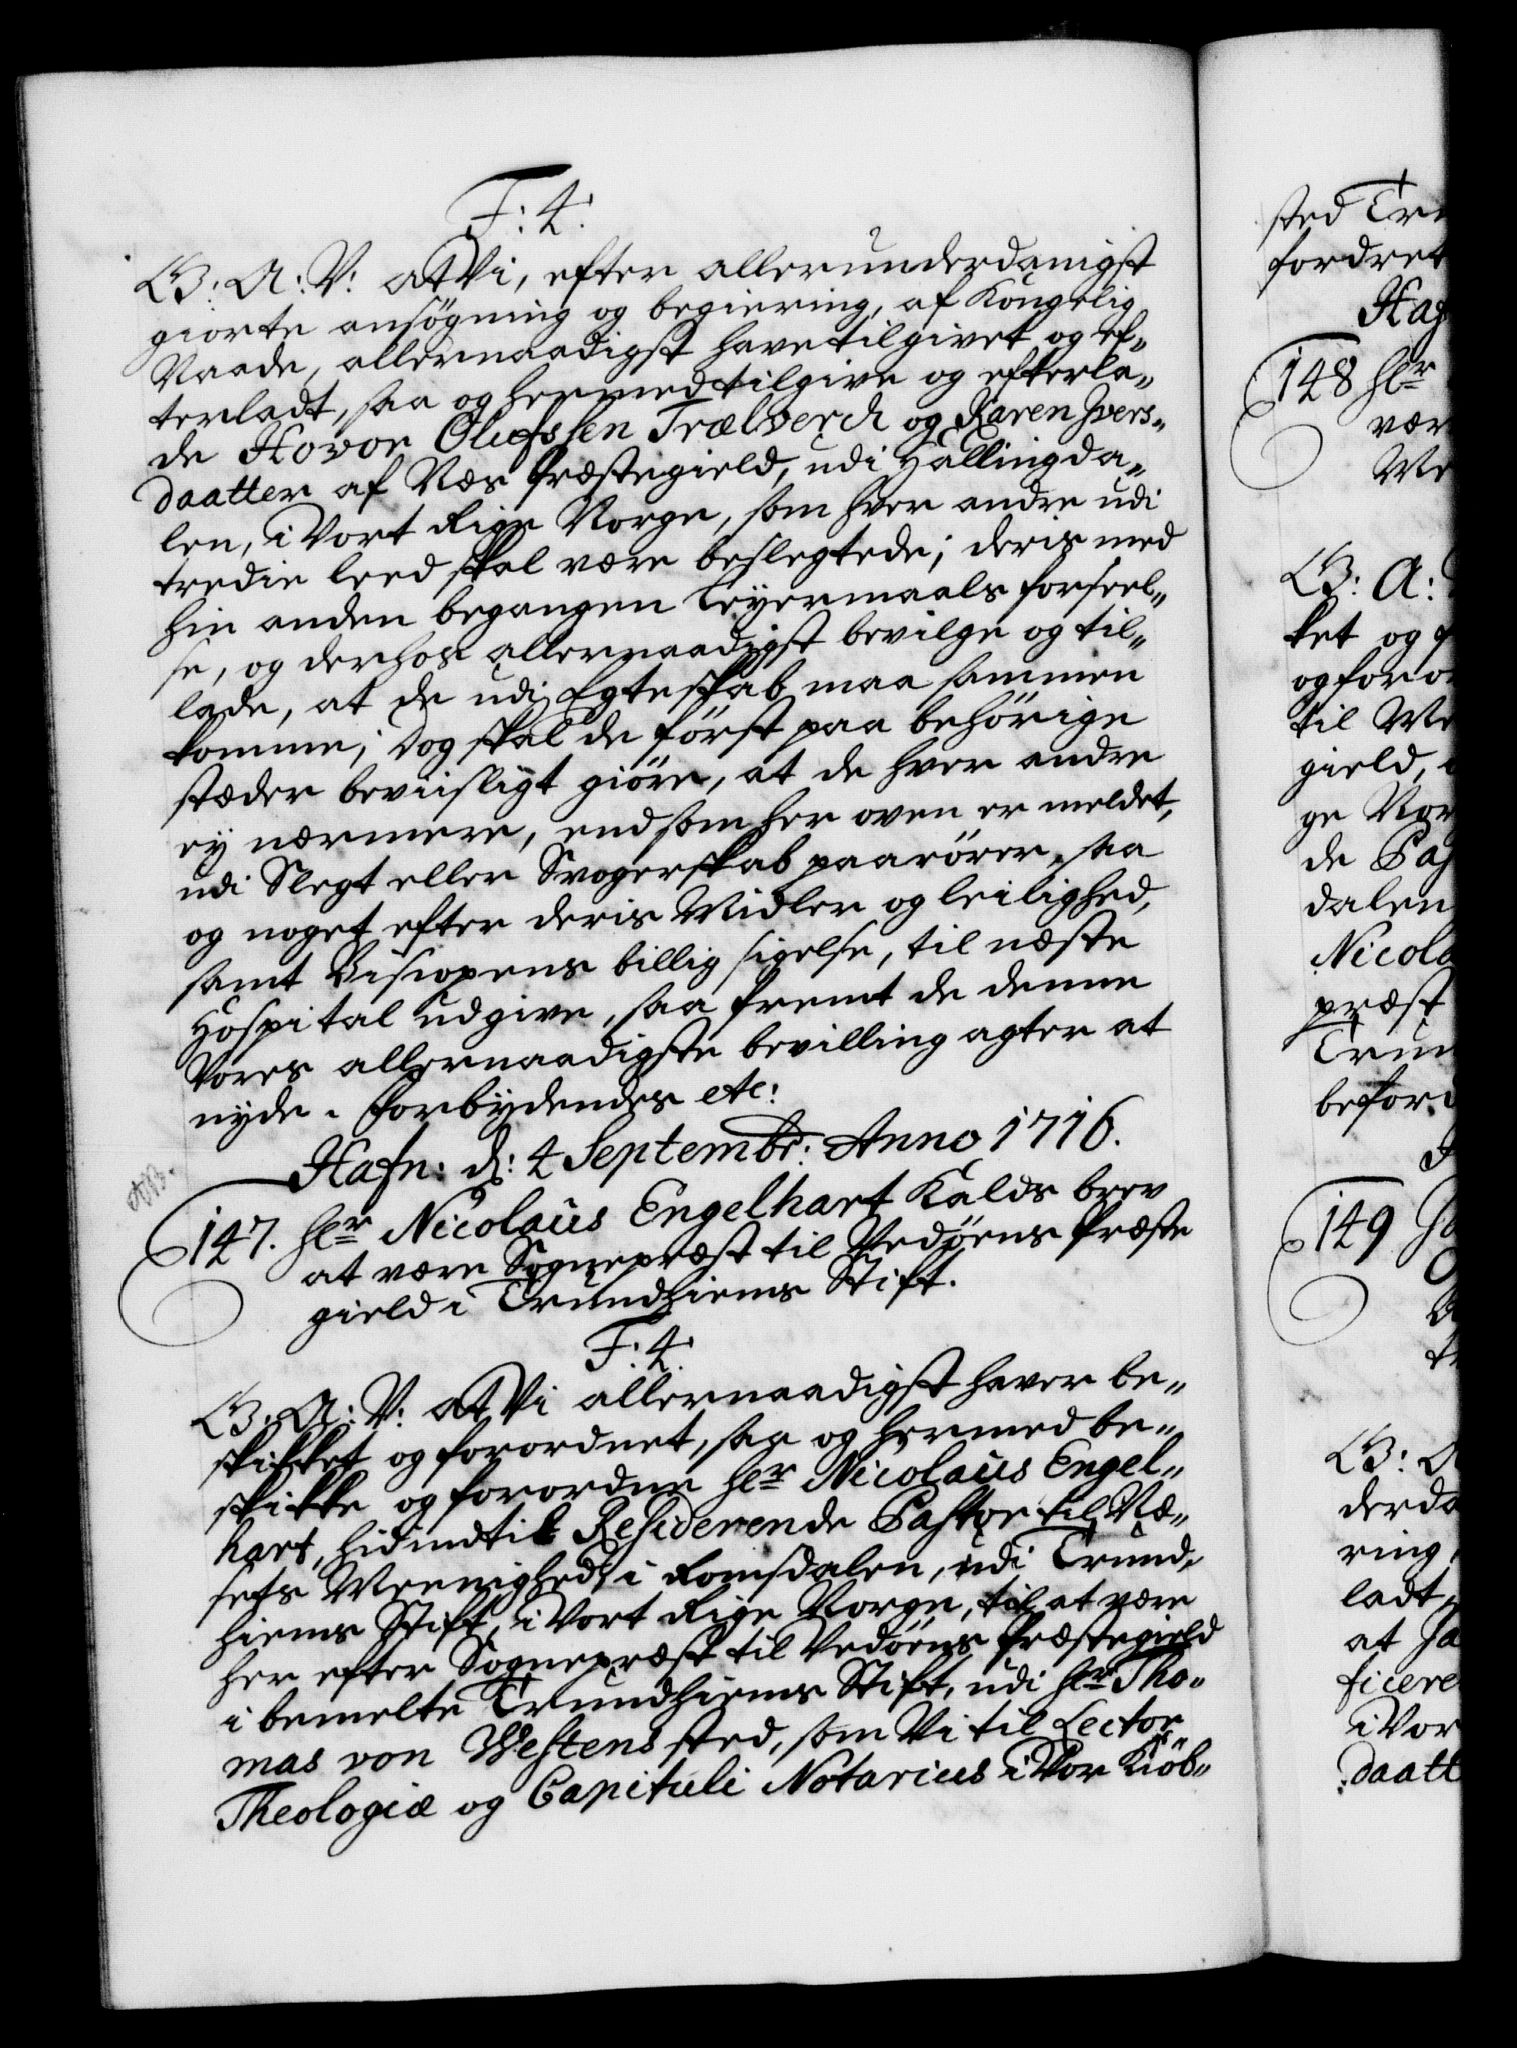 F: 4.
G: A: V: at Vi, efter allerunderdanigst
giorte ansögning og begiering, af Kongelig
Naade, allernaadigst have tilgivet og ef-
terladt, saa og hermed tilgive og efterla-
de Hovor Olufssen Trælverch og Karen Ivers-
daatter af Næs Præstegield, udi Hallingda-
len, i Vort Rige Norge, som hver andre udi
tredie leed skal være beslegtede; deris med
hin anden begangen Leyermaals forseel-
se, og derhos allernaadigst bevilge og til-
lade, at de udi Egteskab maa sammen
komme; dog skal de först paa behörige
stæder beviisligt giöre, at de hver andre
ey nærmere, end som her oven er meldet,
udi Slegt eller Svogerskab paarörer, saa
og noget efter deris Midler og leilighed,
samt Biscopens billig sigelse, til næste
Hospital udgive, saa fremt de denne
Vores allernaadigste bevilling agter at
nyde. Forbydendes etc:
Hafn: d: 4 Septembr: Anno 1716.
NB.
147. Hr Nicolaus Engelhart Kalds brev
at være Sognepræst til Vedöens Præste
gield i Trundhiems Stift.
F: 4.
G: A: V: at Vi allernaadigst haver be-
skikket og forordnet, saa og hermed be-
skikke og forordne Hr Nicolaus Engel-
hart, hidindtil Residerende Pastor til Næ-
sets Meenighed, i Romsdalen, udi Trund-
hiems Stift, i Vort Rige Norge, til at være
her efter Sognepræst til Vedöens Præstegield
i bemelte Trundhiems Stift, udi Hr Tho-
mas von Westens sted, som Vi til Lector
Theologiæ og Capituli Notarius i Vor Kiöb-
sted Tru
fordret
Haf
148 Hr
vær
Me
G: A:
ket og f
og foror
til Me
gield,
ge Nor
de Pas
dalen
Nicola
præst
Trun
beford
149
G: A
derda
ring
ladt,
at Ja
ficere
i Vor
daatt